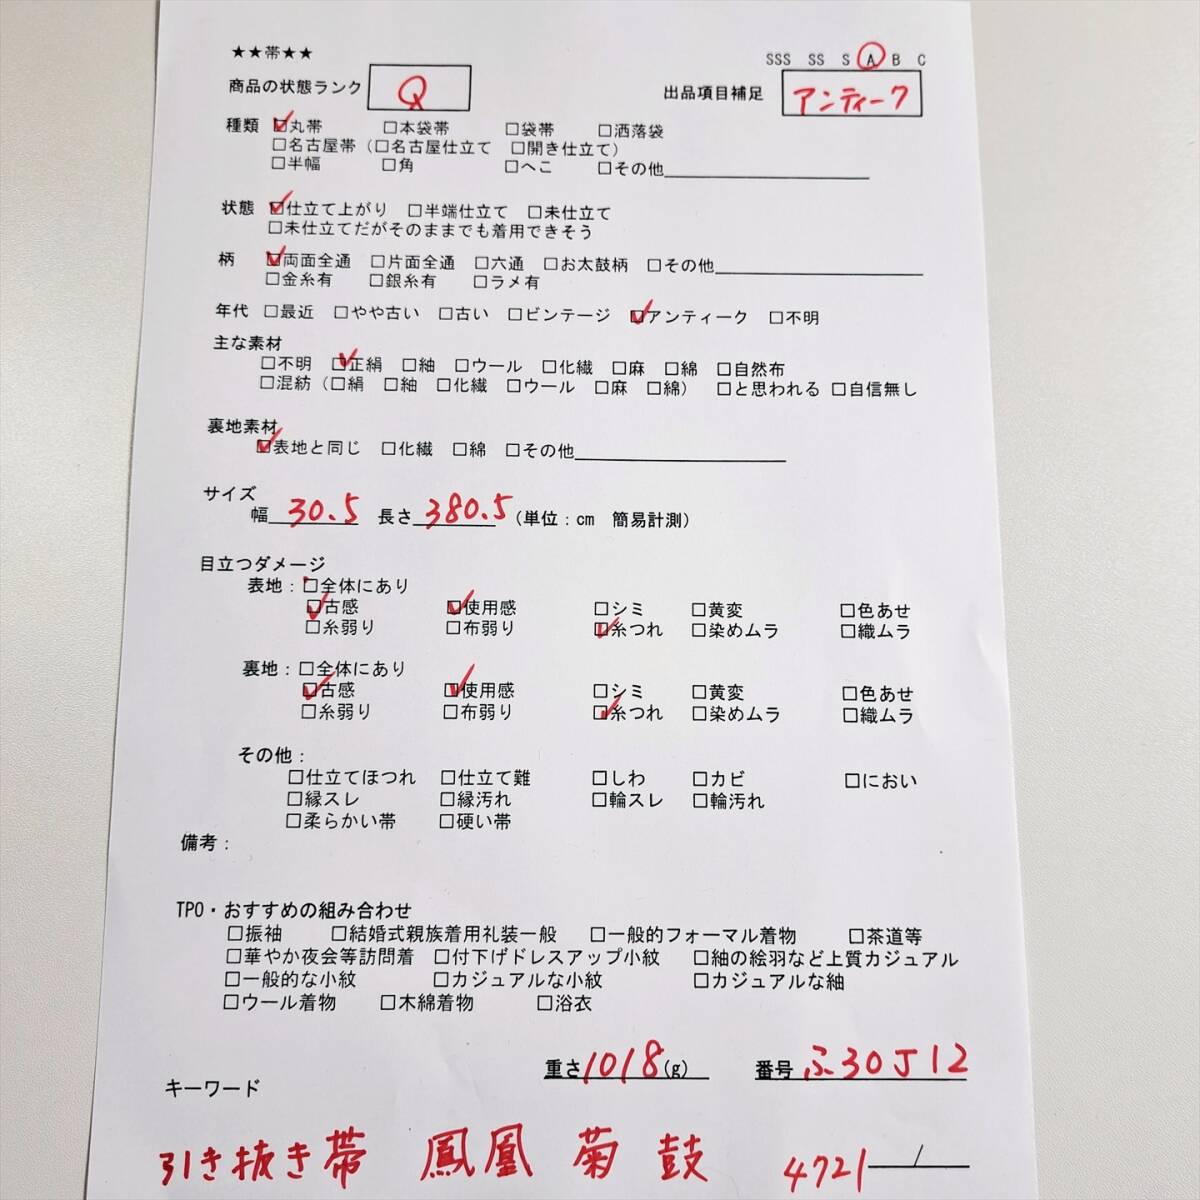 ★★帯★★
SSS SS S A B C
商品の状態ランク Q 出品項目補足 アンティーク
種類 ☑丸帯 □本袋帯 □袋帯 □洒落袋
□名古屋帯（□名古屋仕立て □開き仕立て）
□半幅 □角 □へこ □その他
状態 ☑仕立て上がり □半端仕立て □未仕立て
□未仕立てだがそのままでも着用できそう
柄 ☑両面全通 □片面全通 □六通 □お太鼓柄 □その他
□金糸有 □銀糸有 □ラメ有
年代 □最近 □やや古い □古い □ビンテージ ☑アンティーク □不明
主な素材
□不明 ☑正絹 □紬 □ウール □化繊 □麻 □綿 □自然布
□混紡（□絹 □紬 □化繊 □ウール □麻 □綿） □と思われる □自信無し
裏地素材
☑表地と同じ □化繊 □綿 □その他
サイズ
幅 30.5 長さ 380.5 （単位：cm 簡易計測）
目立つダメージ
表地：□全体にあり
☑古感 ☑使用感 □シミ □黄変 □色あせ
□糸弱り □布弱り ☑糸つれ □染めムラ □織ムラ
裏地：□全体にあり
☑古感 ☑使用感 □シミ □黄変 □色あせ
□糸弱り □布弱り ☑糸つれ □染めムラ □織ムラ
その他：
□仕立てほつれ □仕立て難 □しわ □カビ □におい
□縁スレ □縁汚れ □輪スレ □輪汚れ
□柔らかい帯 □硬い帯
備考：
TPO・おすすめの組み合わせ
□振袖 □結婚式親族着用礼装一般 □一般的フォーマル着物 □茶道等
□華やか夜会等訪問着 □付下げドレスアップ小紋 □紬の絵羽など上質カジュアル
□一般的な小紋 □カジュアルな小紋 □カジュアルな紬
□ウール着物 □木綿着物 □浴衣
重さ 1018 (g) 番号 ふ30J12
キーワード
引き抜き帯 鳳凰 菊 鼓 4721 /